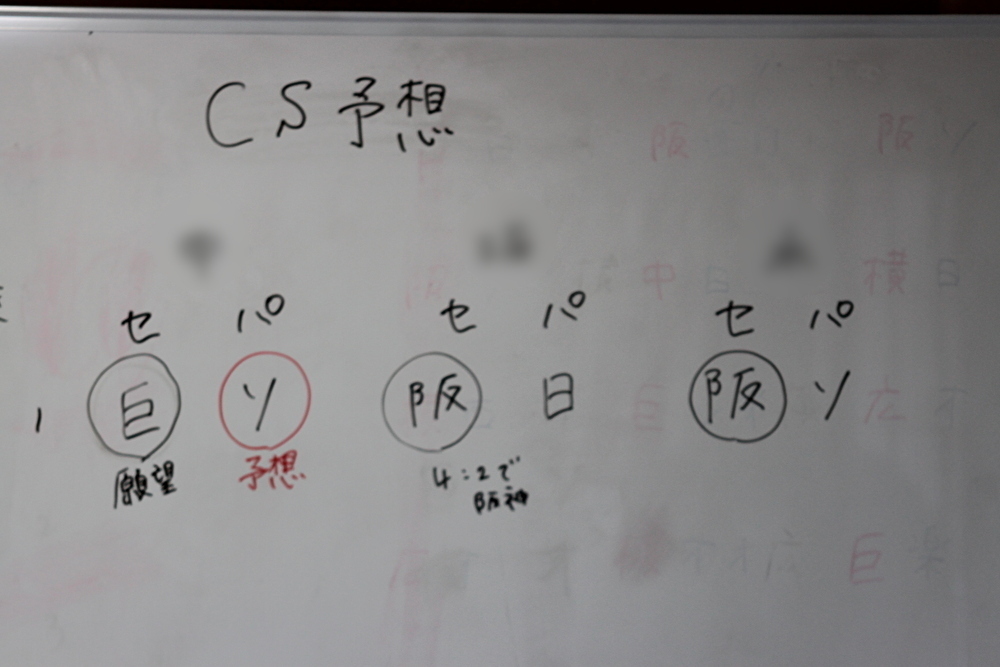 CS予想
セ パ セ パ セ パ
1 巨 ソ 阪 日 阪 ソ
願望 予想 4:2で
阪神